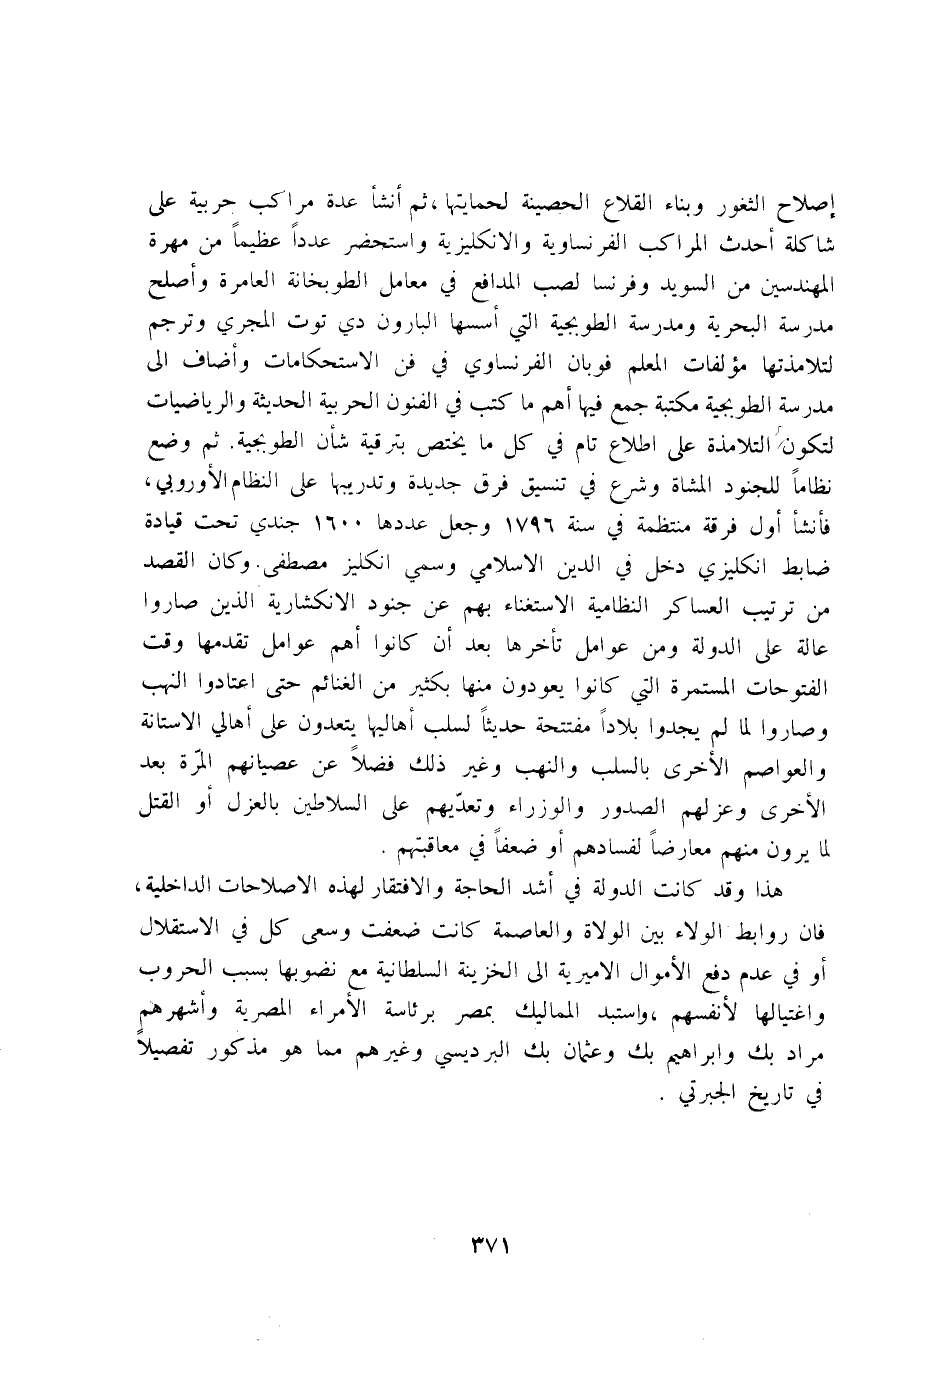 إصلاح الثغور وبناء القلاع الحصينة لحمايتها ، ثم أنشأ عدة مراكب حربية على
شاكلة أحدث المراكب الفرنساوية والانكليزية واستحضر عدداً عظيماً من مهرة
المهندسين من السويد وفرنسا لصب المدافع في معامل الطوبخانة العامرة وأصلح
مدرسة البحرية ومدرسة الطوبجية التي أسسها البارون دي توت المجري وترجم
لتلامذتها مؤلفات المعلم فوبان الفرنساوي في فن الاستحكامات وأضاف الى
مدرسة الطوبجية مكتبة جمع فيها أهم ما كتب في الفنون الحربية الحديثة والرياضيات
لتكون التلامذة على اطلاع تام في كل ما يختص بترقية شأن الطوبجية . ثم وضع
نظاماً للجنود المشاة وشرع في تنسيق فرق جديدة وتدريبها على النظام الأوروبي ،
فأنشأ أول فرقة منتظمة في سنة ١٧٩٦ وجعل عددها ١٦٠٠ جندي تحت قيادة
ضابط انكليزي دخل في الدين الاسلامي وسمي انكليز مصطفى . وكان القصد
من ترتيب العساكر النظامية الاستغناء بهم عن جنود الانكشارية الذين صاروا
عالة على الدولة ومن عوامل تأخرها بعد أن كانوا أهم عوامل تقدمها وقت
الفتوحات المستمرة التي كانوا يعودون منها بكثير من الغنائم حتى اعتادوا النهب
وصاروا لما لم يجدوا بلاداً مفتتحة حديثاً لسلب أهاليها يتعدون على أهالي الاستانة
والعواصم الأخرى بالسلب والنهب وغير ذلك فضلاً عن عصيانهم المرّة بعد
الأخرى وعزلهم الصدور والوزراء وتعدّيهم على السلاطين بالعزل أو القتل
لما يرون منهم معارضاً لفسادهم أو ضعفاً في معاقبتهم .
هذا وقد كانت الدولة في أشد الحاجة والافتقار لهذه الاصلاحات الداخلية ،
فان روابط الولاء بين الولاة والعاصمة كانت ضعفت وسعى كل في الاستقلال
أو في عدم دفع الأموال الاميرية الى الخزينة السلطانية مع نضوبها بسبب الحروب
واغتيالها لأنفسهم ، واستبد المماليك بمصر برئاسة الأمراء المصرية وأشهرهم
مراد بك وابراهيم بك وعثمان بك البرديسي وغيرهم مما هو مذكور تفصيلاً
في تاريخ الجبرتي .
٣٧١